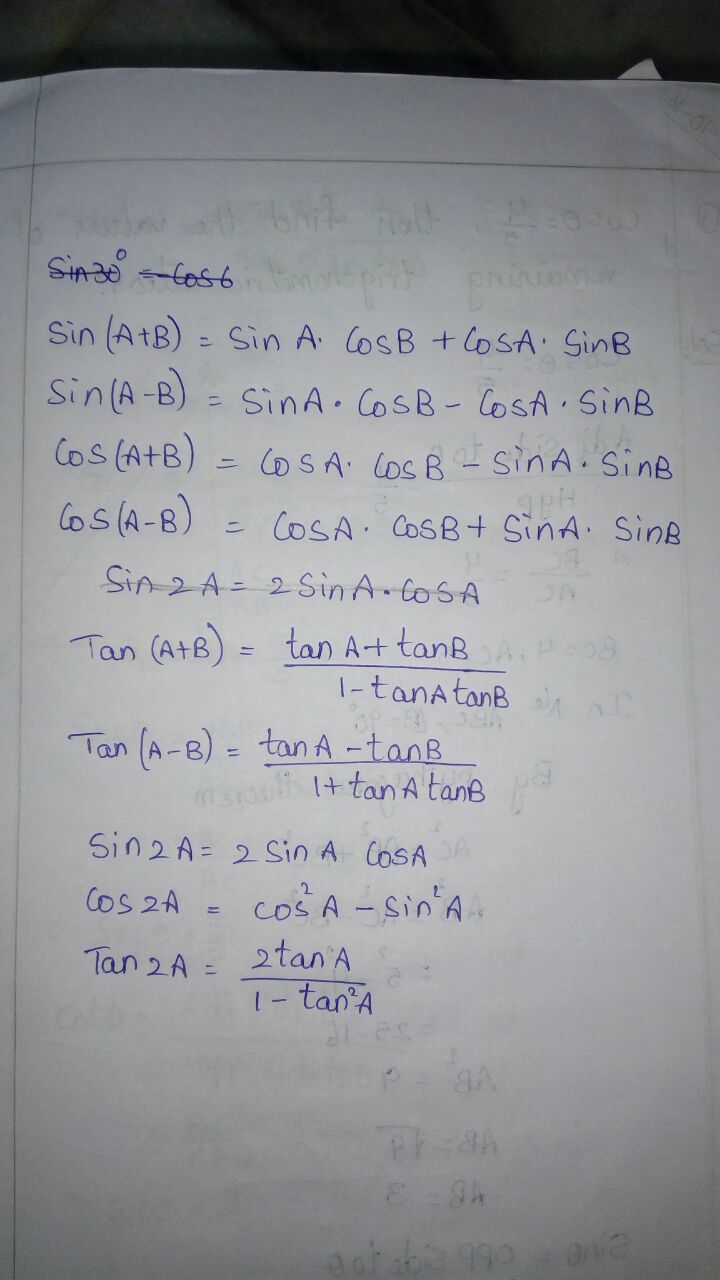 Sin30° = Cos6
Sin (A+B) = Sin A. CosB + CosA. SinB
Sin(A-B) = SinA. CosB - CosA. SinB
Cos(A+B) = CosA. CosB - SinA. SinB
Cos(A-B) = CosA. CosB + SinA. SinB
Sin 2A = 2 SinA. CosA
Tan (A+B) = tan A + tanB / 1 - tanA tanB
Tan (A-B) = tanA - tanB / 1 + tanA tanB
Sin2A = 2 Sin A CosA
Cos 2A = cos²A - Sin²A.
Tan 2A = 2tanA / 1 - tan²A